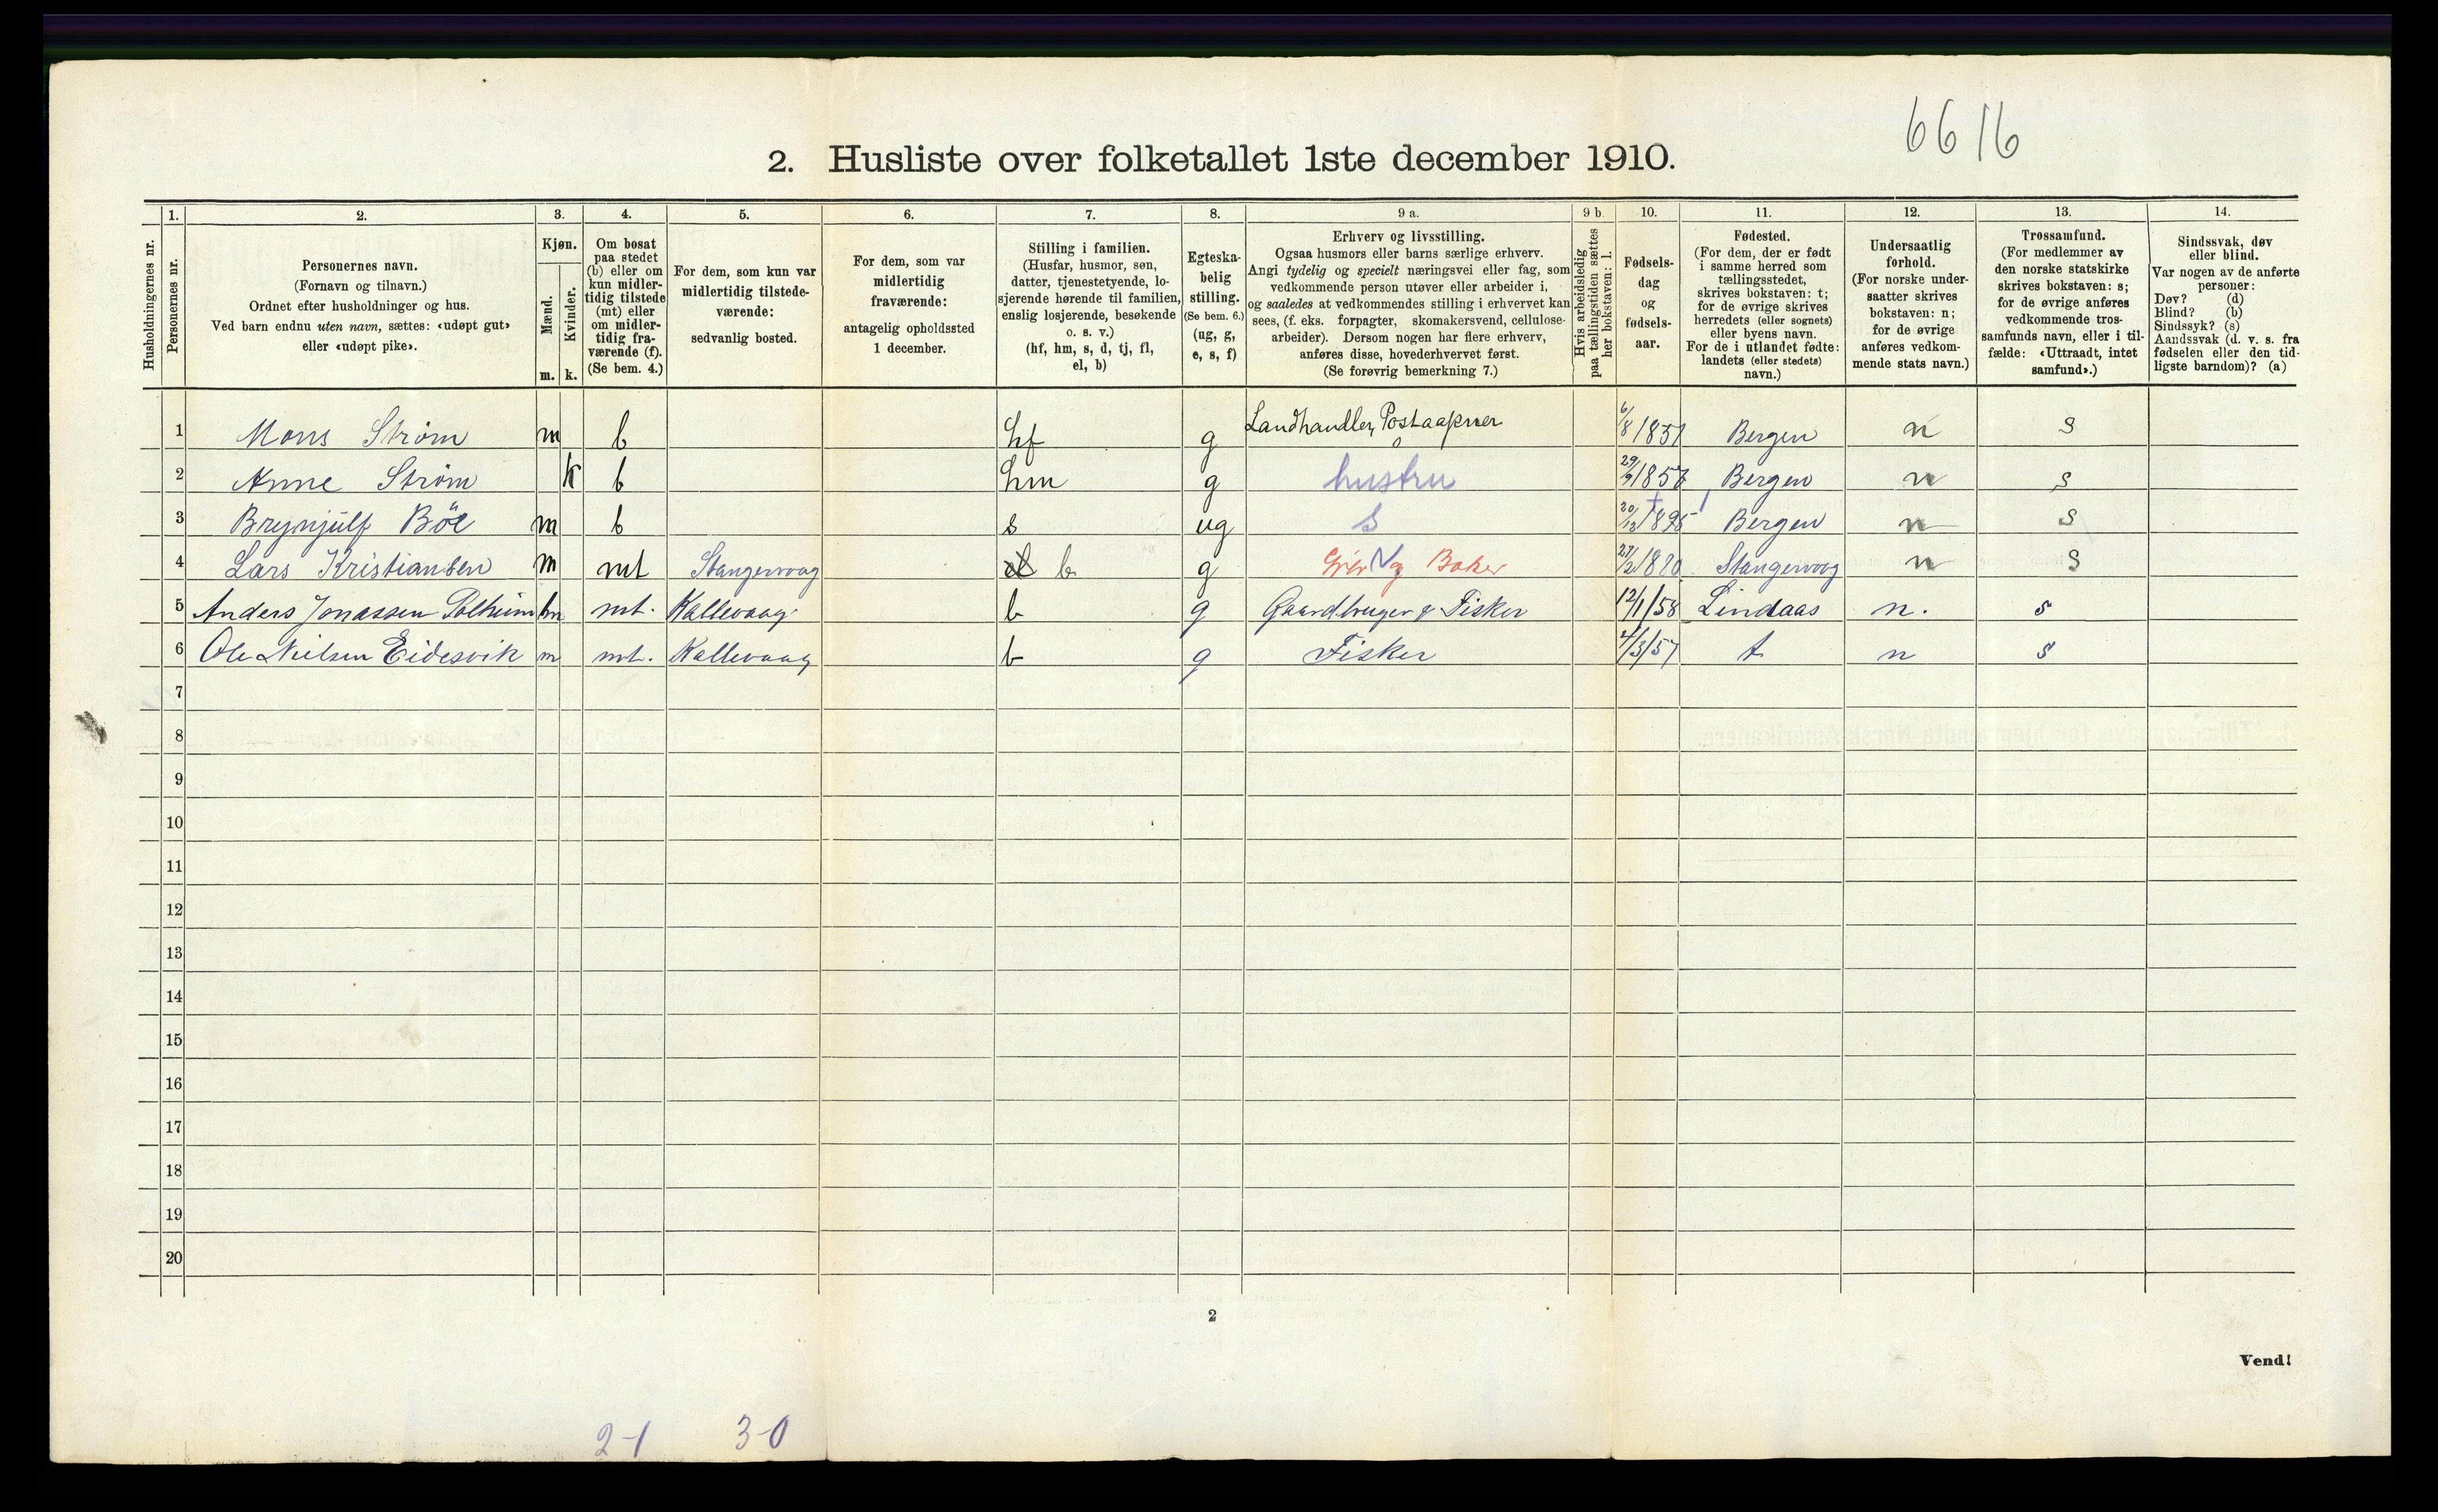 6616
2. Husliste over folketallet 1ste december 1910.
1. 2. 3. 4. 5. 6. 7. 8. 9 a. 9 b. 10. 11. 12. 13. 14.
Husholdningernes nr.
Personernes nr.
Personernes navn.
(Fornavn og tilnavn.)
Ordnet efter husholdninger og hus.
Ved barn endnu uten navn, sættes: «udøpt gut»
eller «udøpt pike».
Kjøn.
Mænd.
Kvinder.
m. k.
Om bosat
paa stedet
(b) eller om
kun midler-
tidig tilstede
(mt) eller
om midler-
tidig fra-
værende (f).
(Se bem. 4.)
For dem, som kun var
midlertidig tilstede-
værende:
sedvanlig bosted.
For dem, som var
midlertidig
fraværende:
antagelig opholdssted
1 december.
Stilling i familien.
(Husfar, husmor, søn,
datter, tjenestetyende, lo-
sjerende hørende til familien,
enslig losjerende, besøkende
o. s. v.)
(hf, hm, s, d, tj, fl,
el, b)
Egteska-
belig
stilling.
(Se bem. 6.)
(ug, g,
e, s, f)
Erhverv og livsstilling.
Ogsaa husmors eller barns særlige erhverv.
Angi tydelig og specielt næringsvei eller fag, som
vedkommende person utøver eller arbeider i,
og saaledes at vedkommendes stilling i erhvervet kan
sees, (f. eks. forpagter, skomakersvend, cellulose-
arbeider). Dersom nogen har flere erhverv,
anføres disse, hovederhvervet først.
(Se forøvrig bemerkning 7.)
Hvis arbeidsledig
paa tællingstiden sættes
her bokstaven: l.
Fødsels-
dag
og
fødsels-
aar.
Fødested.
(For dem, der er født
i samme herred som
tællingsstedet,
skrives bokstaven: t;
for de øvrige skrives
herredets (eller sognets)
eller byens navn.
For de i utlandet fødte:
landets (eller stedets)
navn.)
Undersaatlig
forhold.
(For norske under-
saatter skrives
bokstaven: n;
for de øvrige
anføres vedkom-
mende stats navn.)
Trossamfund.
(For medlemmer av
den norske statskirke
skrives bokstaven: s;
for de øvrige anføres
vedkommende tros-
samfunds navn, eller i til-
fælde: «Uttraadt, intet
samfund».)
Sindssvak, døv
eller blind.
Var nogen av de anførte
personer:
Døv? (d)
Blind? (b)
Sindssyk? (s)
Aandssvak (d. v. s. fra
fødselen eller den tid-
ligste barndom)? (a)
1 Mons Strøm m b hf g Landhandler, Postaapner 6/8 1851 Bergen n s
2 Anne Strøm k b hm g hustru Bergen n s
3 Brynjulf Böe m b s ug s 20/12 1895 Bergen n s
4 Lars Kristiansen m mt Stangervaag b g og Baker Stangervaag n s
5 Anders Jonassen m mt. Kallevaag b g Gaardbruger & Fisker 12/1/58 Lindaas n. s
6 Ole Nielsen Eidesvik m mt. Kallevaag b g Fisker 4/3/57 t n s
7
8
9
10
11
12
13
14
15
16
17
18
19
20
2
Vend!
2-1 3-0